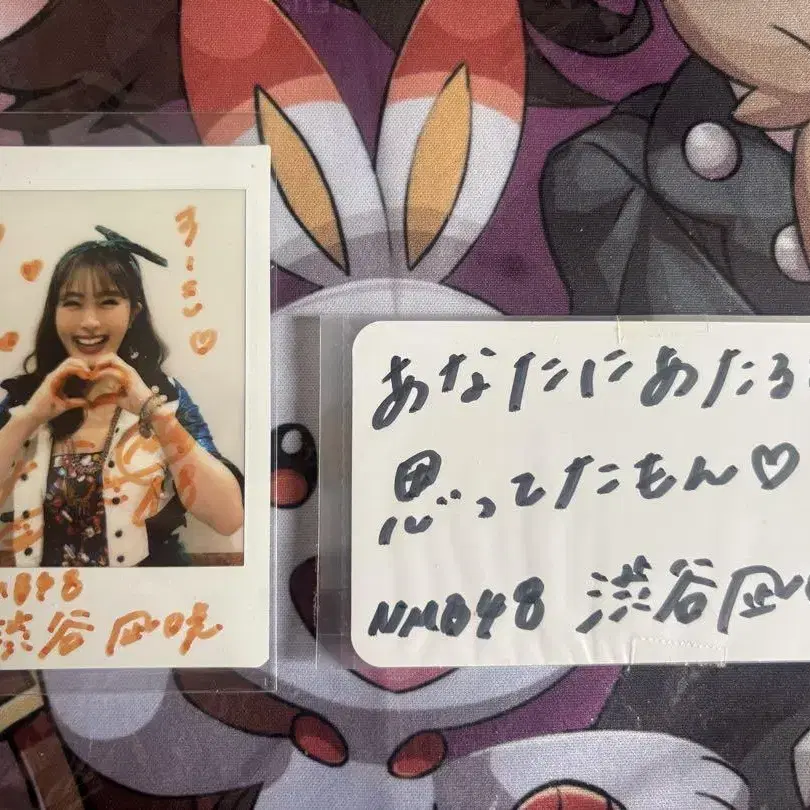 NMB48
渋谷凪咲
あなたにあたる
思ってたもん♡
NMB48 渋谷凪